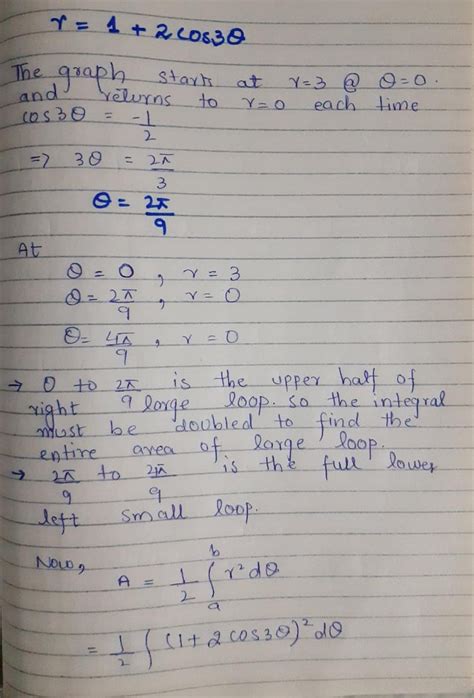 r = 1 + 2 cos3θ
The graph starts at r=3 @ θ=0.
and returns to r=0 each time
cos3θ = -1/2
=> 3θ = 2π/3
θ = 2π/9
At
θ = 0 , r = 3
θ = 2π/9 , r = 0
θ = 4π/9 , r = 0
→ 0 to 2π/9 is the upper half of
right large loop. so the integral
must be doubled to find the
entire area of large loop.
→ 2π/9 to 2π/9 is the full lower
left small loop.
Now,
A = 1/2 ∫_a^b r² dθ
= 1/2 ∫ (1 + 2 cos3θ)² dθ